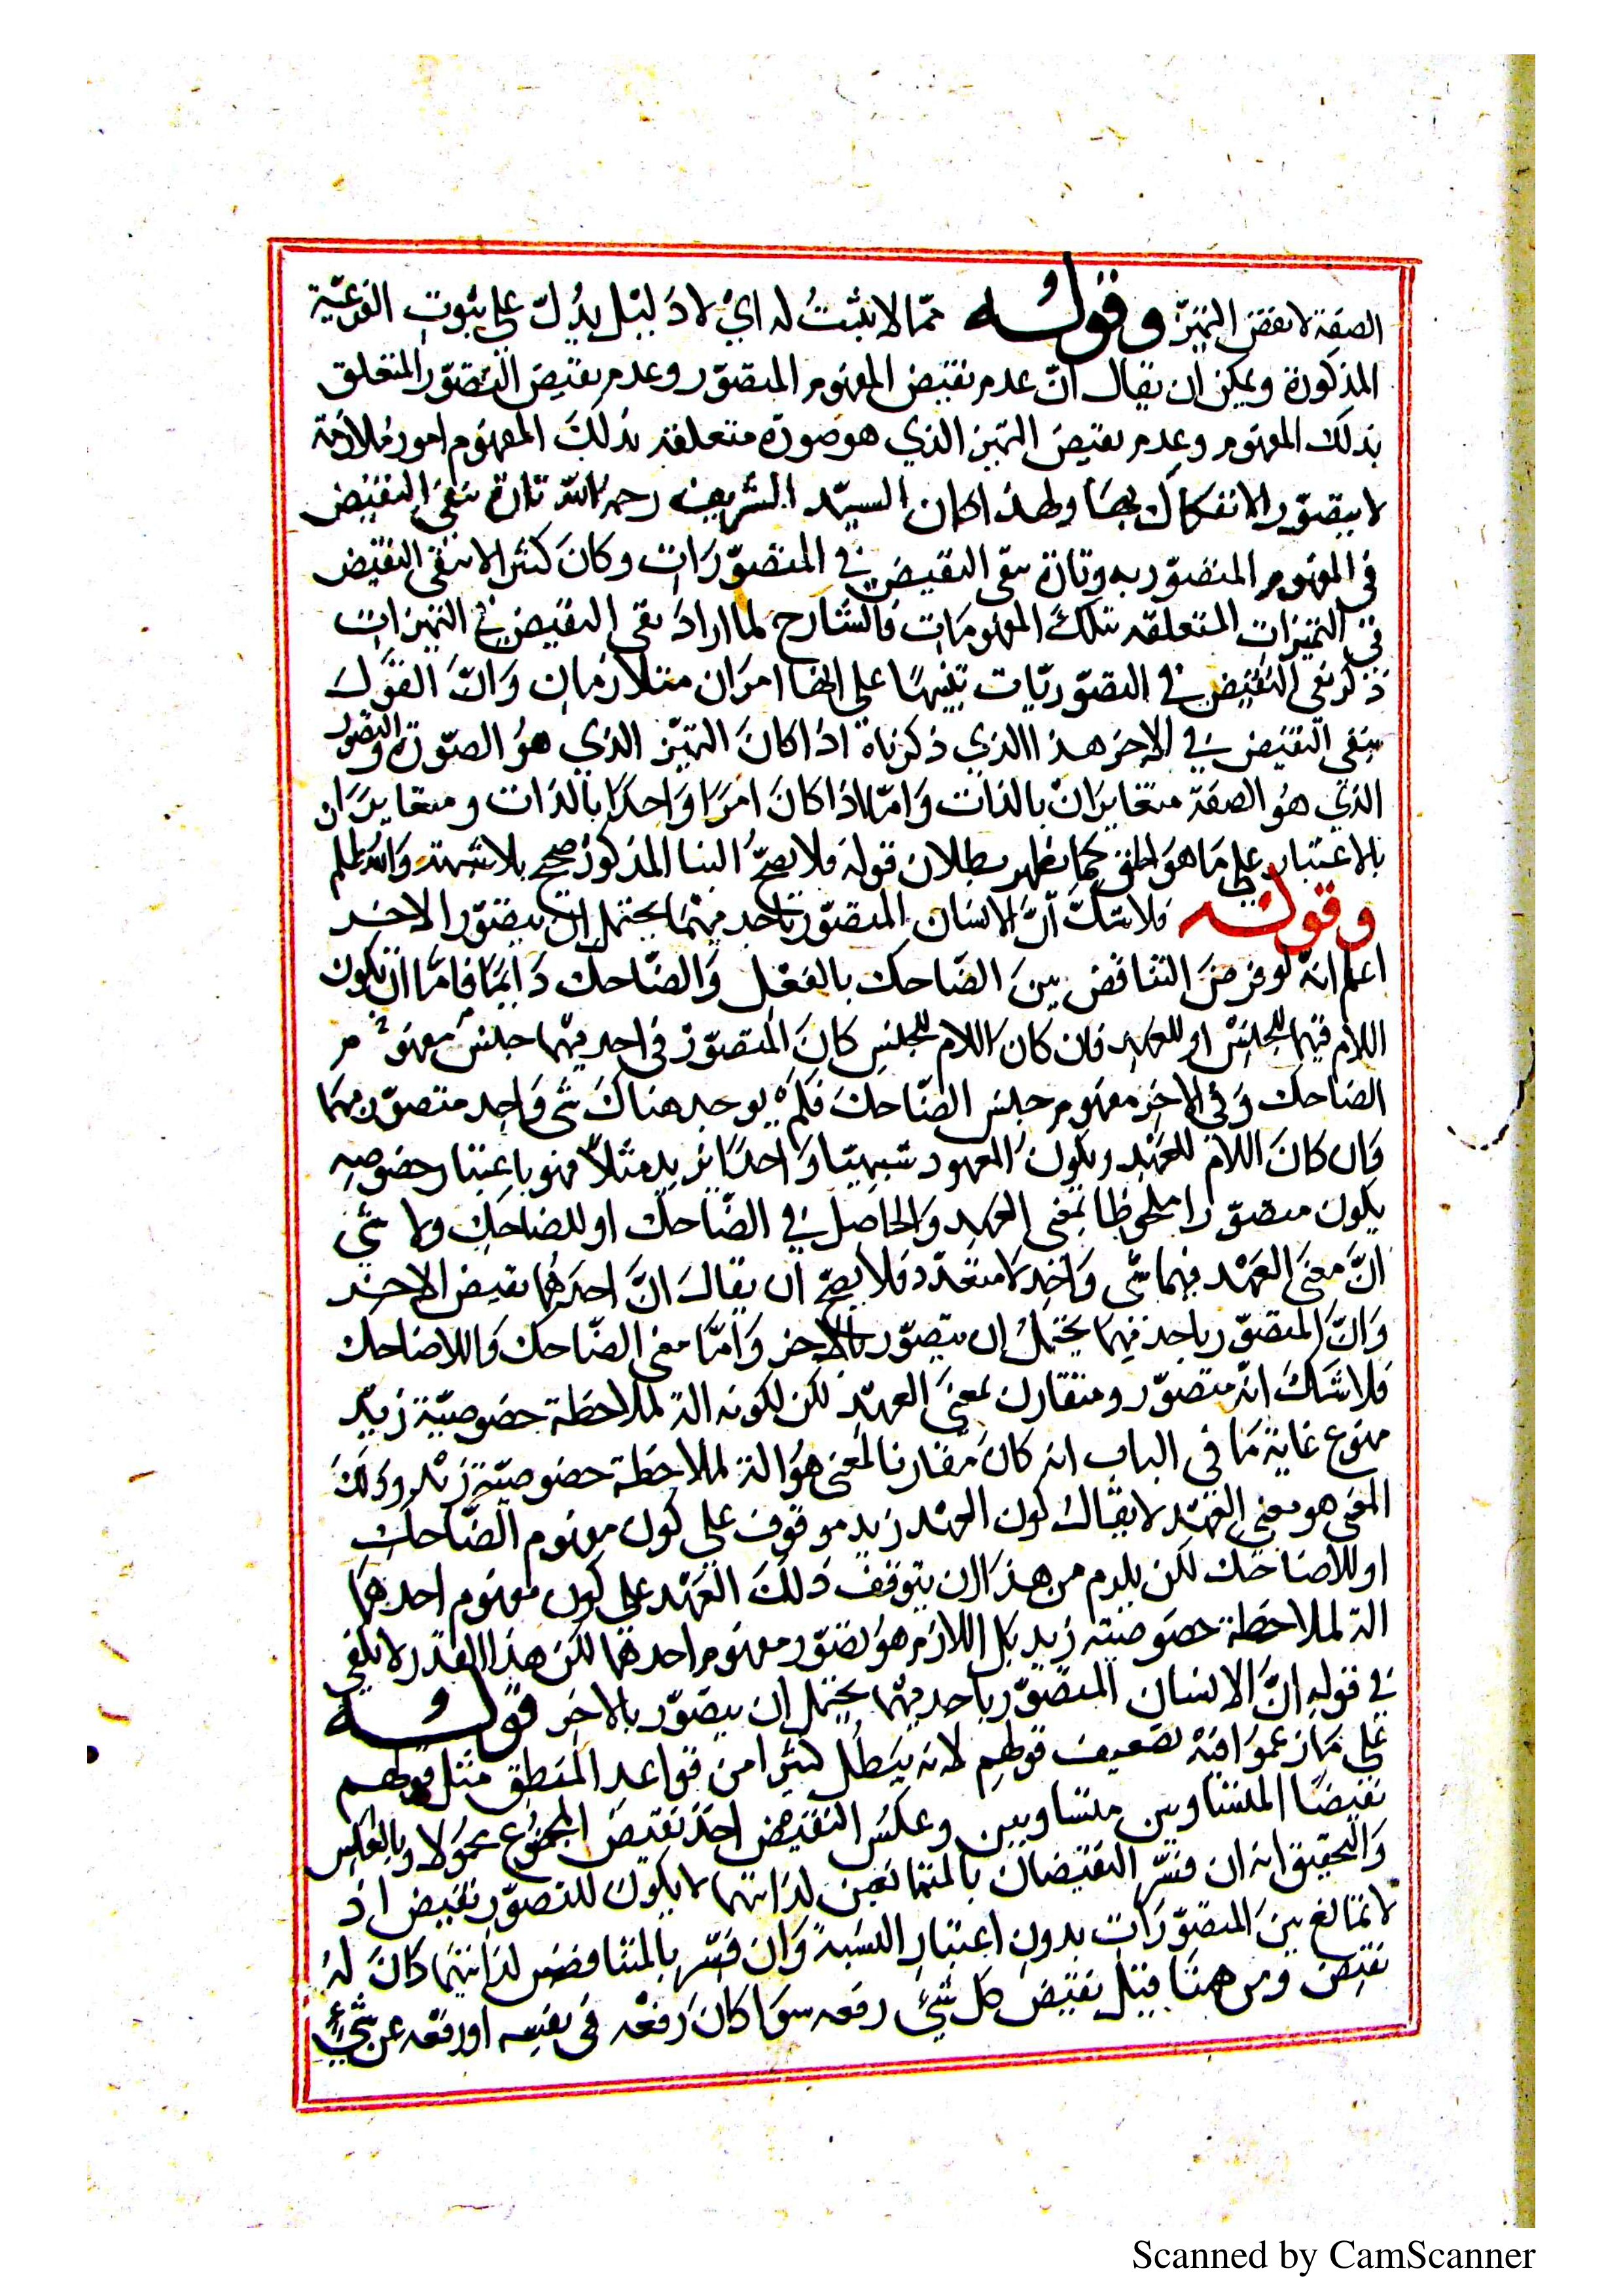 الصفة لا نقض التميز وقوله مما لا يثبت له اي لا دليل يدل على ثبوت الفرعية
المذكورة ويمكن ان يقال انّ عدم نقيض المفهوم المتصوّر وعدم نقيض التصوّر المتعلق
بذلك المفهوم وعدم نقيض التميز الذي هو صورة متعلقة بذلك المفهوم امور متلازمة
لا يتصوّر الانفكاك بينها ولهذا كان السيّد الشريف رحمه الله تارة ينفي النقيض
في المفهوم المتصوّر به وتارة ينفي النقيض في المتصوّرات وكان كثيرا لا ينفي النقيض
في التميزات المتعلقة بتلك المفهومات فالشارح لما اراد نفي النقيض في التميزات
ذكر نفي النقيض في التصوّريّات تنبيها على انهما امران متلازمان وانّ القول
بنفي النقيض في الاخر هذا الذي ذكرناه اذا كان التميّز الذي هو الصّورة والتصور
الذي هو الصفة متغايران بالذات وامّا اذا كان امرا واحدا بالذات ومتغايران
بالاعتبار على ما هو الحق كما يظهر بطلان قوله فلا يصحّ البنا المذكور صحيح بلا شبهة والله اعلم
وقوله فلا شكّ انّ الانسان المتصوّر باحد منهما يحتمل ان يتصوّر الاخر
اعلم انه لو فرض التناقض بين الضاحك بالفعل والضّاحك دايما فامّا ان يكون
اللام فيهما للجنس او للعهد فان كان اللام للجنس كان المتصوّر في احد منهما جنس مفهوم
الضاحك وفي الاخر مفهوم جنس الضّاحك فلم يوجد هناك شي واحد متصوّر بهما
وان كان اللام للعهد ويكون المعهود شيئا واحدا زيد مثلاً فهو باعتبار خصوصه
يكون متصوّرا ملحوظا بمعنى العهد والحاصل في الضّاحك او للضاحك ولا شيء
انّ معنى العهد فيهما شي واحد لا متعدّد فلا يصحّ ان يقال انّ احدهما نقيض الاخر
وانّ المتصوّر باحد منهما يحتمل ان يتصوّر بالاخر وامّا معنى الضّاحك واللاضاحك
فلا شك انّه متصوّر ومتقارن بمعنى العهد لكن لكونه الة لملاحظة خصوصيّة زيد
ممنوع غاية ما في الباب انه كان مقارنا لمعنى هو الة لملاحظة خصوصيّة زيد وذلك
المعنى هو معنى العهد لا يقال كون العهد زيد موقوف على كون مفهوم الضّاحك
او للاضاحك لكن يلزم من هذا ان يتوقف ذلك العهد على كون مفهوم احدهما
الة لملاحظة خصوصيته زيد بل اللازم هو تصوّر مفهوم احدهما لكن هذا القدر لا يكفي
في قوله انّ الانسان المتصوّر باحد منهما يحتمل ان يتصوّر بالاخر قوله
على ما زعموا فيه تضعيف قولهم لانه يبطل كثيرا من قواعد المنطق مثل قولهم
نقيضا المتساويين متساويين وعكس النقيض اخذ نقيض الموضوع محمولا وبالعكس
والتحقيق انه ان فسّر النقيضان بالمتمانعين لذاتهما لا يكون للتصوّر نقيض اذ
لا تمانع بين المتصوّرات بدون اعتبار النسبة وان فسّر بالمتنافض لذاتيهما كان له
نقيض ومن هنا قيل نقيض كل شيء رفعه سوا كان رفعه في نفسه او رفعه عن شيء
Scanned by CamScanner